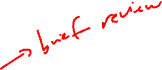 → brief review